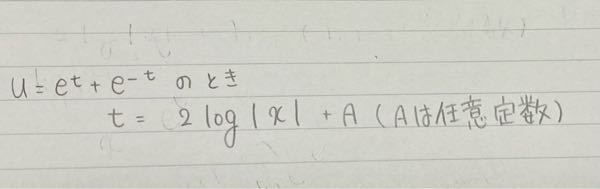 u = e^t + e^-t のとき
t = 2 log |x| + A (Aは任意定数)